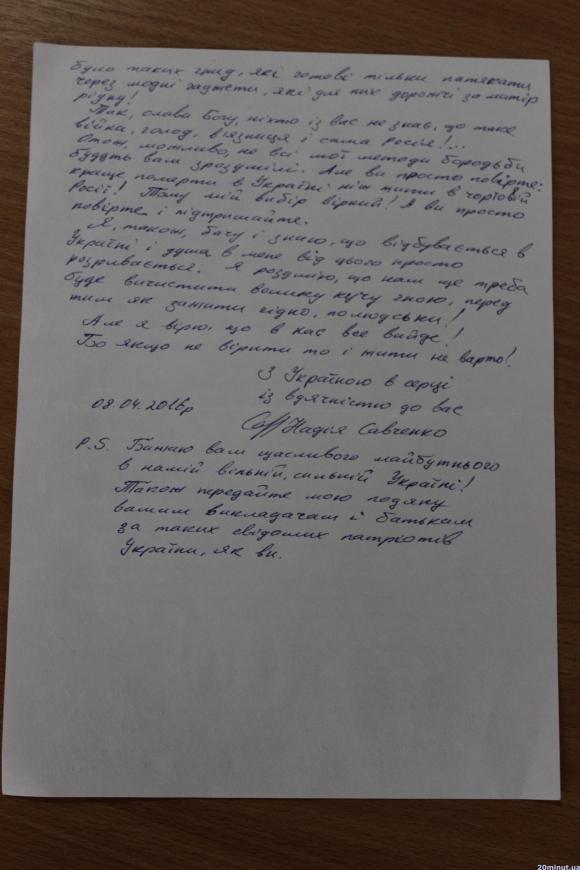 було таких гнид, які готові тільки патякати
через модні гаджети, які для них дорожчі за матір
рідну!
Так, слава Богу, ніхто із вас не знає, що таке
війка, голод, в'язниця і сама Росія!...
Отож, можливо, не всі мої методи бородьби
будуть вам зрозумілі. Але ви просто повірте:
краще померти в Україні ніж жити в чортовій
Росії! Тому мій вибір вірний! А ви просто
повірте і підтримайте.
Я, також, бачу і знаю, що відбувається в
Україні і душа в мене від цього просто
розривається. Я розумію, що нам ще треба
буде вичистити велику кучу гною, перед
тим як зажити гідно, по людськи!
Але я вірю, що в нас все вийде!
Бо якщо не вірити то і жити не варто!
З Україною в серці
із вдячністю до вас
08.04.2016р
Надія Савченко
P.S. Бажаю вам щасливого майбутнього
в нашій вільній, сильній Україні!
Також передайте мою подяку
вашим викладачам і батькам
за таких свідомих патріотів
України, як ви.
20minut.ua